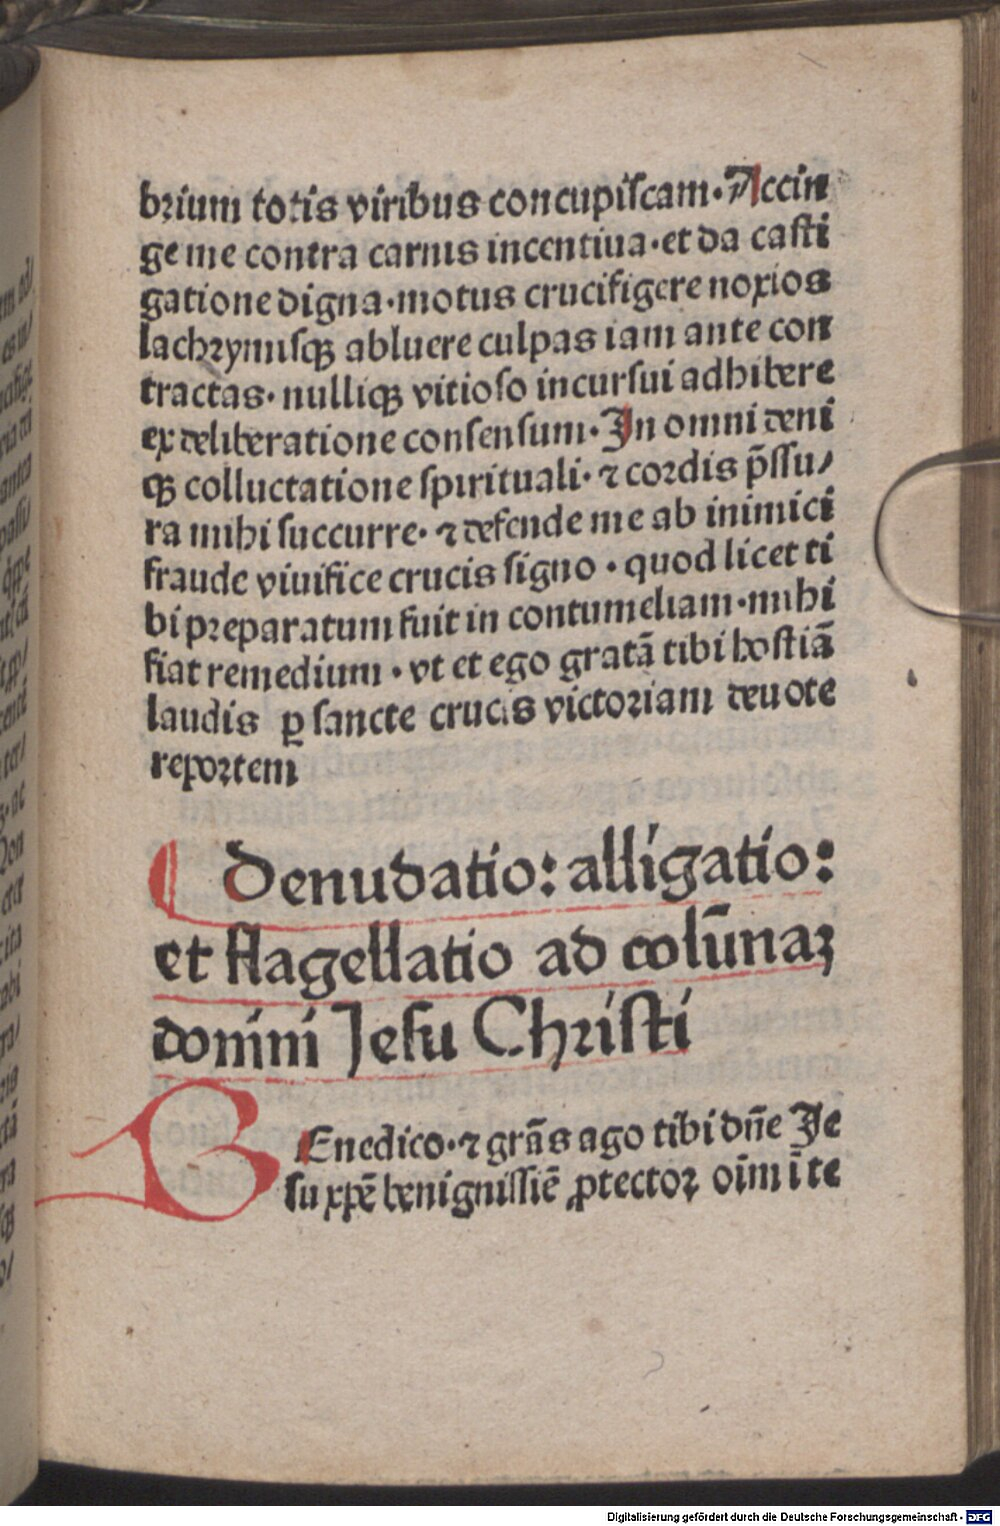 brium totis viribus concupiſcam. Accin
ge me contra carnis incentiua. et da caſti
gatione digna. motus crucifigere noxios
lachrymiſqꝫ abluere culpas iam ante con
tractas. nulliqꝫ vitioſo incurſui adhibere
ex deliberatione conſenſum. In omni deni
qꝫ colluctatione ſpirituali. ⁊ cordis p̄ſſu/
ra mihi ſuccurre. ⁊ defende me ab inimici
fraude viuifice crucis ſigno . quod licet ti
bi preparatum fuit in contumeliam. mihi
fiat remedium . vt et ego gratā tibi hoſtiā
laudis ꝑ ſancte crucis victoriam deuote
reportem
Denudatio: alligatio:
et flagellatio ad colūnaꝫ
domini Jeſu Chriſti
BEnedico. ⁊ grās ago tibi dn̄e Je
ſu xp̄e benigniſſīe ꝓtector oīm ī te
Digitalisierung gefördert durch die Deutsche Forschungsgemeinschaft - DFG